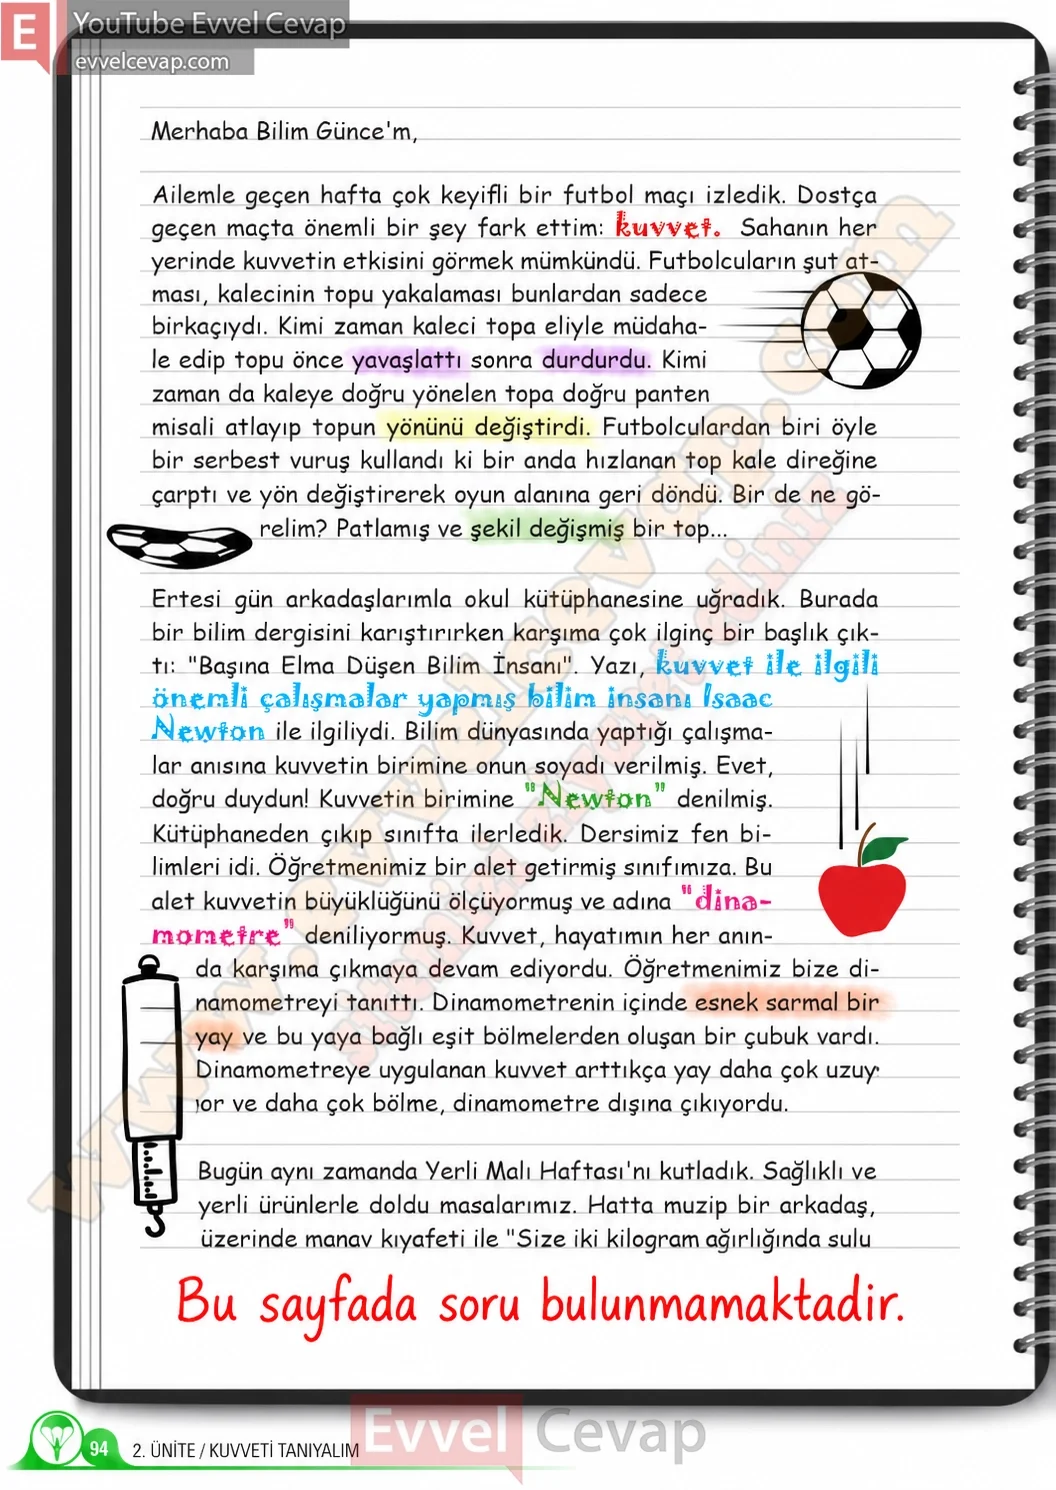 E YouTube Evvel Cevap
evvelcevap.com
Merhaba Bilim Günce'm,
Ailemle geçen hafta çok keyifli bir futbol maçı izledik. Dostça
geçen maçta önemli bir şey fark ettim: kuvvet. Sahanın her
yerinde kuvvetin etkisini görmek mümkündü. Futbolcuların şut at-
ması, kalecinin topu yakalaması bunlardan sadece
birkaçıydı. Kimi zaman kaleci topa eliyle müdaha-
le edip topu önce yavaşlattı sonra durdurdu. Kimi
zaman da kaleye doğru yönelen topa doğru panten
misali atlayıp topun yönünü değiştirdi. Futbolculardan biri öyle
bir serbest vuruş kullandı ki bir anda hızlanan top kale direğine
çarptı ve yön değiştirerek oyun alanına geri döndü. Bir de ne gö-
relim? Patlamış ve şekil değişmiş bir top...
Ertesi gün arkadaşlarımla okul kütüphanesine uğradık. Burada
bir bilim dergisini karıştırırken karşıma çok ilginç bir başlık çık-
tı: "Başına Elma Düşen Bilim İnsanı". Yazı, kuvvet ile ilgili
önemli çalışmalar yapmış bilim insanı Isaac
Newton ile ilgiliydi. Bilim dünyasında yaptığı çalışma-
lar anısına kuvvetin birimine onun soyadı verilmiş. Evet,
doğru duydun! Kuvvetin birimine "Newton" denilmiş.
Kütüphaneden çıkıp sınıfta ilerledik. Dersimiz fen bi-
limleri idi. Öğretmenimiz bir alet getirmiş sınıfımıza. Bu
alet kuvvetin büyüklüğünü ölçüyormuş ve adına "dina-
mometre" deniliyormuş. Kuvvet, hayatımın her anın-
da karşıma çıkmaya devam ediyordu. Öğretmenimiz bize di-
namometreyi tanıttı. Dinamometrenin içinde esnek sarmal bir
yay ve bu yaya bağlı eşit bölmelerden oluşan bir çubuk vardı.
Dinamometreye uygulanan kuvvet arttıkça yay daha çok uzuy
or ve daha çok bölme, dinamometre dışına çıkıyordu.
Bugün aynı zamanda Yerli Malı Haftası'nı kutladık. Sağlıklı ve
yerli ürünlerle doldu masalarımız. Hatta muzip bir arkadaş,
üzerinde manav kıyafeti ile "Size iki kilogram ağırlığında sulu
Bu sayfada soru bulunmamaktadır.
www.evvelcevap.com
sitemizi ziyaret ediniz
Evvel Cevap
94 2. ÜNİTE / KUVVETİ TANIYALIM